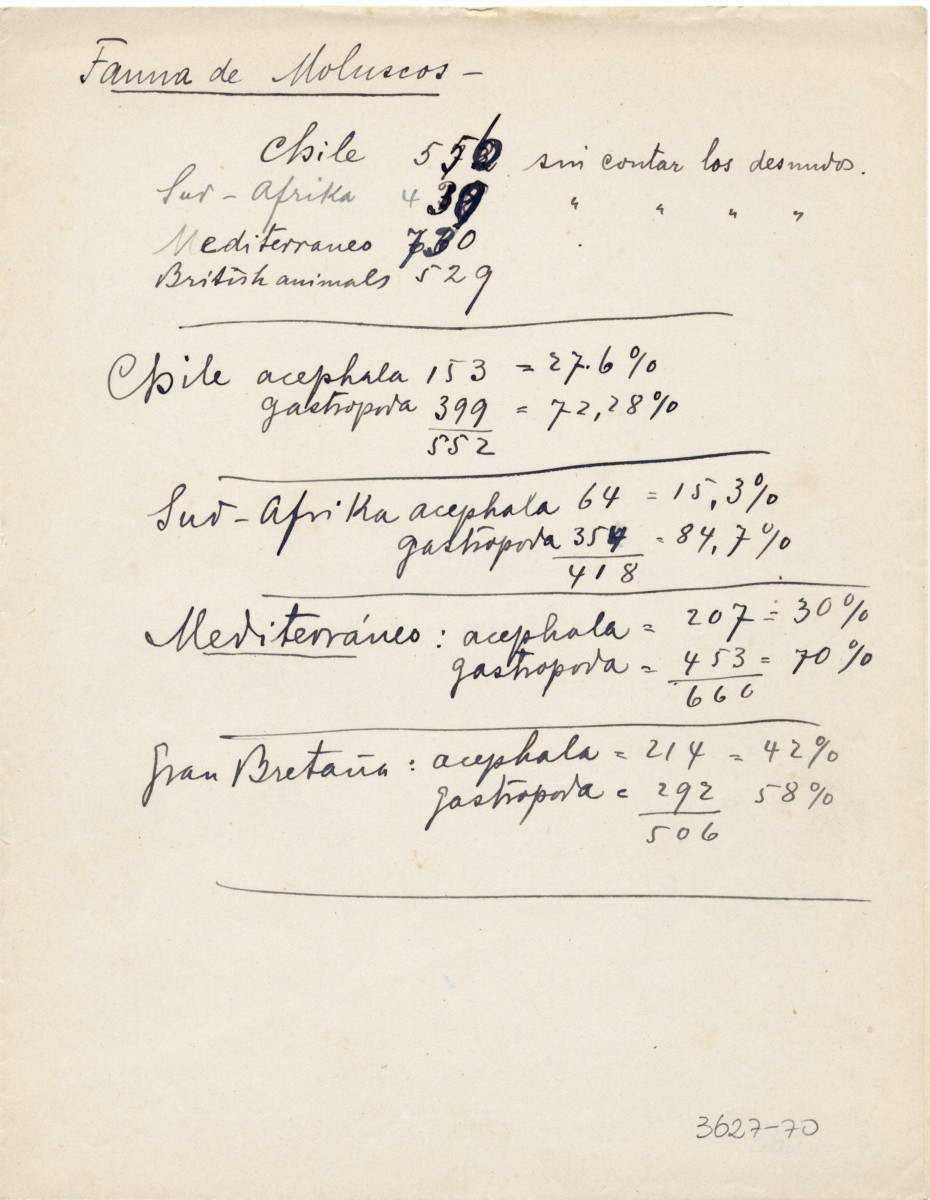 Fauna de Moluscos —
Chile 556 sin contar los desnudos.
Sud-Afrika 439 " " " "
Mediterraneo 730
British animals 529
Chile acephala 153 = 27.6%
gastropoda 399 = 72,28%
552
Sud-Afrika acephala 64 = 15,3%
gastropoda 354 = 84,7%
418
Mediterráneo: acephala = 207 = 30%
gastropoda = 453 = 70%
660
Gran Bretaña: acephala = 214 = 42%
gastropoda = 292 58%
506
3627-70